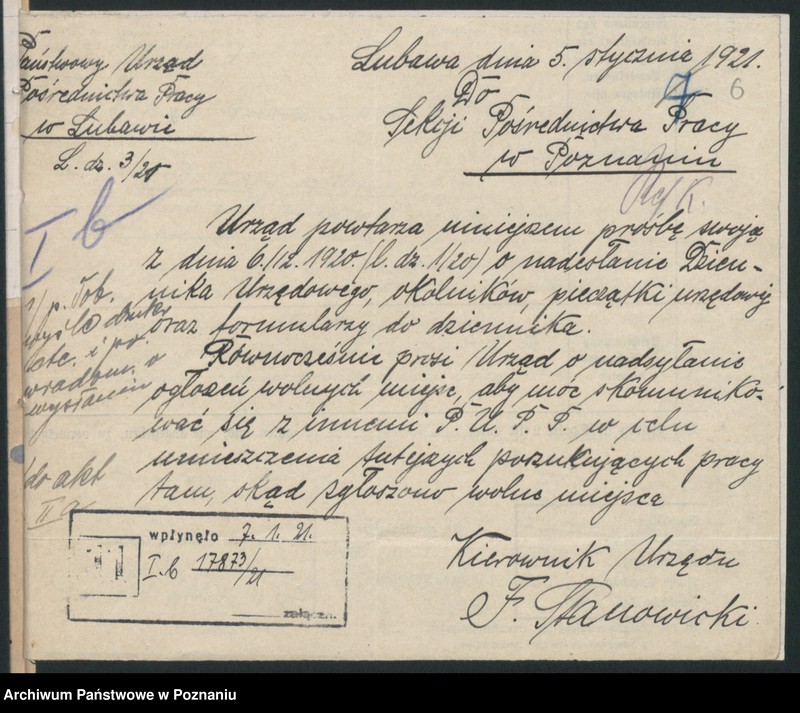 Państwowy Urząd
Pośrednictwa Pracy
w Lubawie
L. dz. 3/21
Lubawa dnia 5. stycznia 1921.
Do
7 6
Sekcji Pośrednictwa Pracy
w Poznaniu
I b
Urząd powtarza niniejszem prośbę swoją
z dnia 6./12. 1920. (l. dz. 1/20) o nadesłanie Dzien-
nika Urzędowego, okólników, pieczątki urzędowej
oraz formularzy do dziennika.
Równocześnie prosi Urząd o nadsyłanie
ogłoszeń wolnych miejsc, aby móc skomuniko-
wać się z innemi P. U. P. P. w celu
umieszczenia tutejszych poszukujących pracy
tam, skąd zgłoszono wolne miejsca
etc. i po.
o
wysłaniu
do akt
II a
wpłynęło 7. 1. 21.
I. b 17873/21
załączn.
Kierownik Urzędu
F. Stanowicki
Archiwum Państwowe w Poznaniu